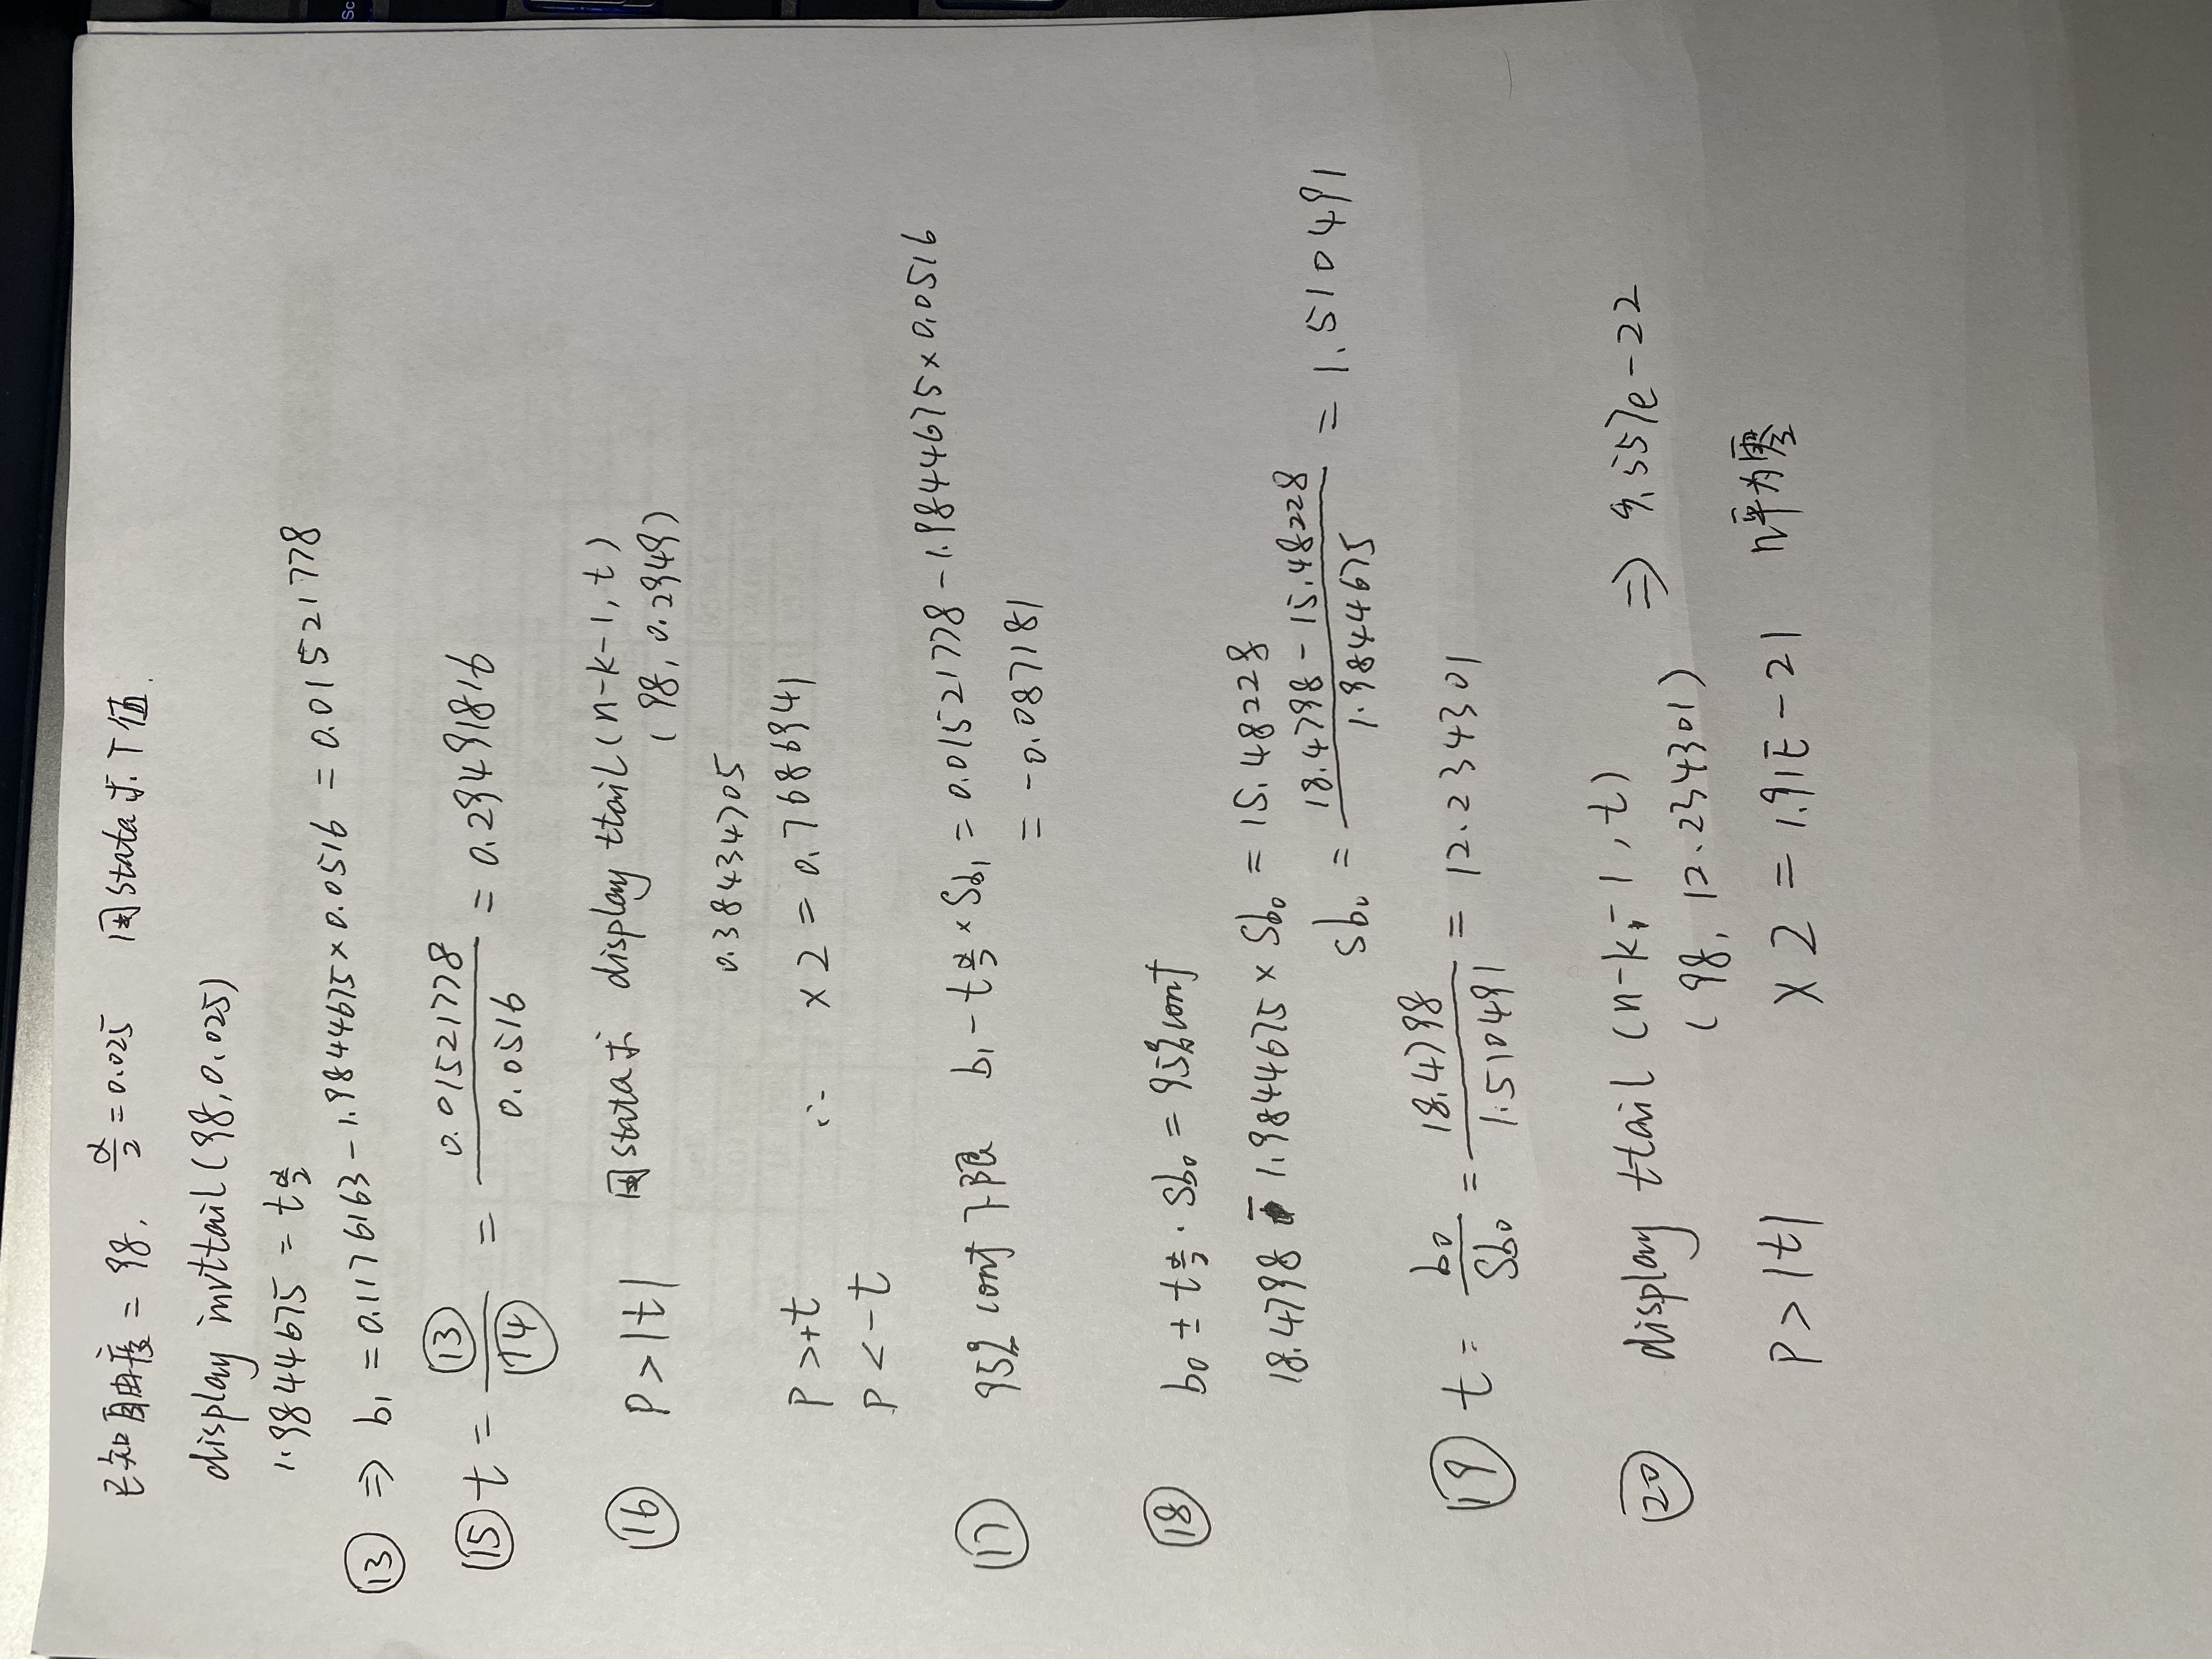 已知自由度 = 98, α/2 = 0.025 用stata求T值.
display invttail(98, 0.025)
1.9844675 = tα/2
⑬ ⇒ b₁ = 0.1176163 - 1.9844675 × 0.0516 = 0.01521778
⑮ t = ⑬/⑭ = 0.01521778/0.0516 = 0.29491816
⑯ P > |t| 用stata求 display ttail (n-k-1, t)
(98, 0.2949)
0.38434705
P > +t ∴ × 2 = 0.7686941
P < -t
⑰ 95% conf 下限 b₁ - tα/2 × Sb₁ = 0.01521778 - 1.9844675 × 0.0516
= -0.087181
⑱ b₀ ± tα/2 · Sb₀ = 95% conf
18.4798 - 1.9844675 × Sb₀ = 15.48228
Sb₀ = 18.4798 - 15.48228/1.9844675 = 1.510491
⑲ t = b₀/Sb₀ = 18.4798/1.510491 = 12.234301
⑳ display ttail (n-k-1, t) ⇒ 9.557e-22
(98, 12.234301)
P > |t| × 2 = 1.91E-21 评为零